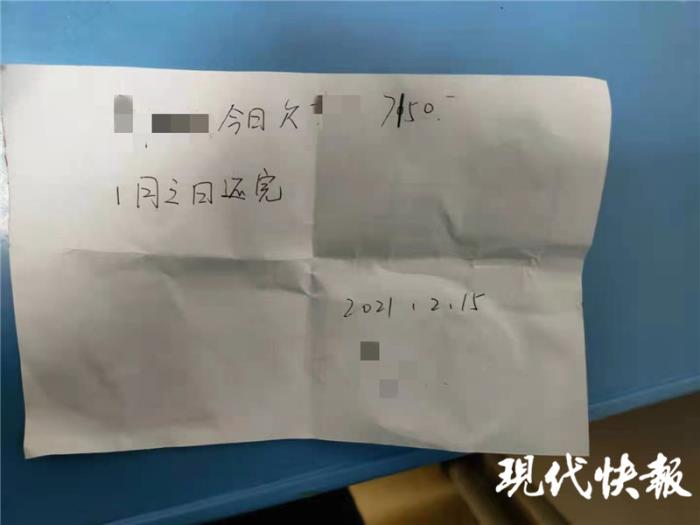 今日欠 7150.-
1月之日还完
2021.2.15
现代快報